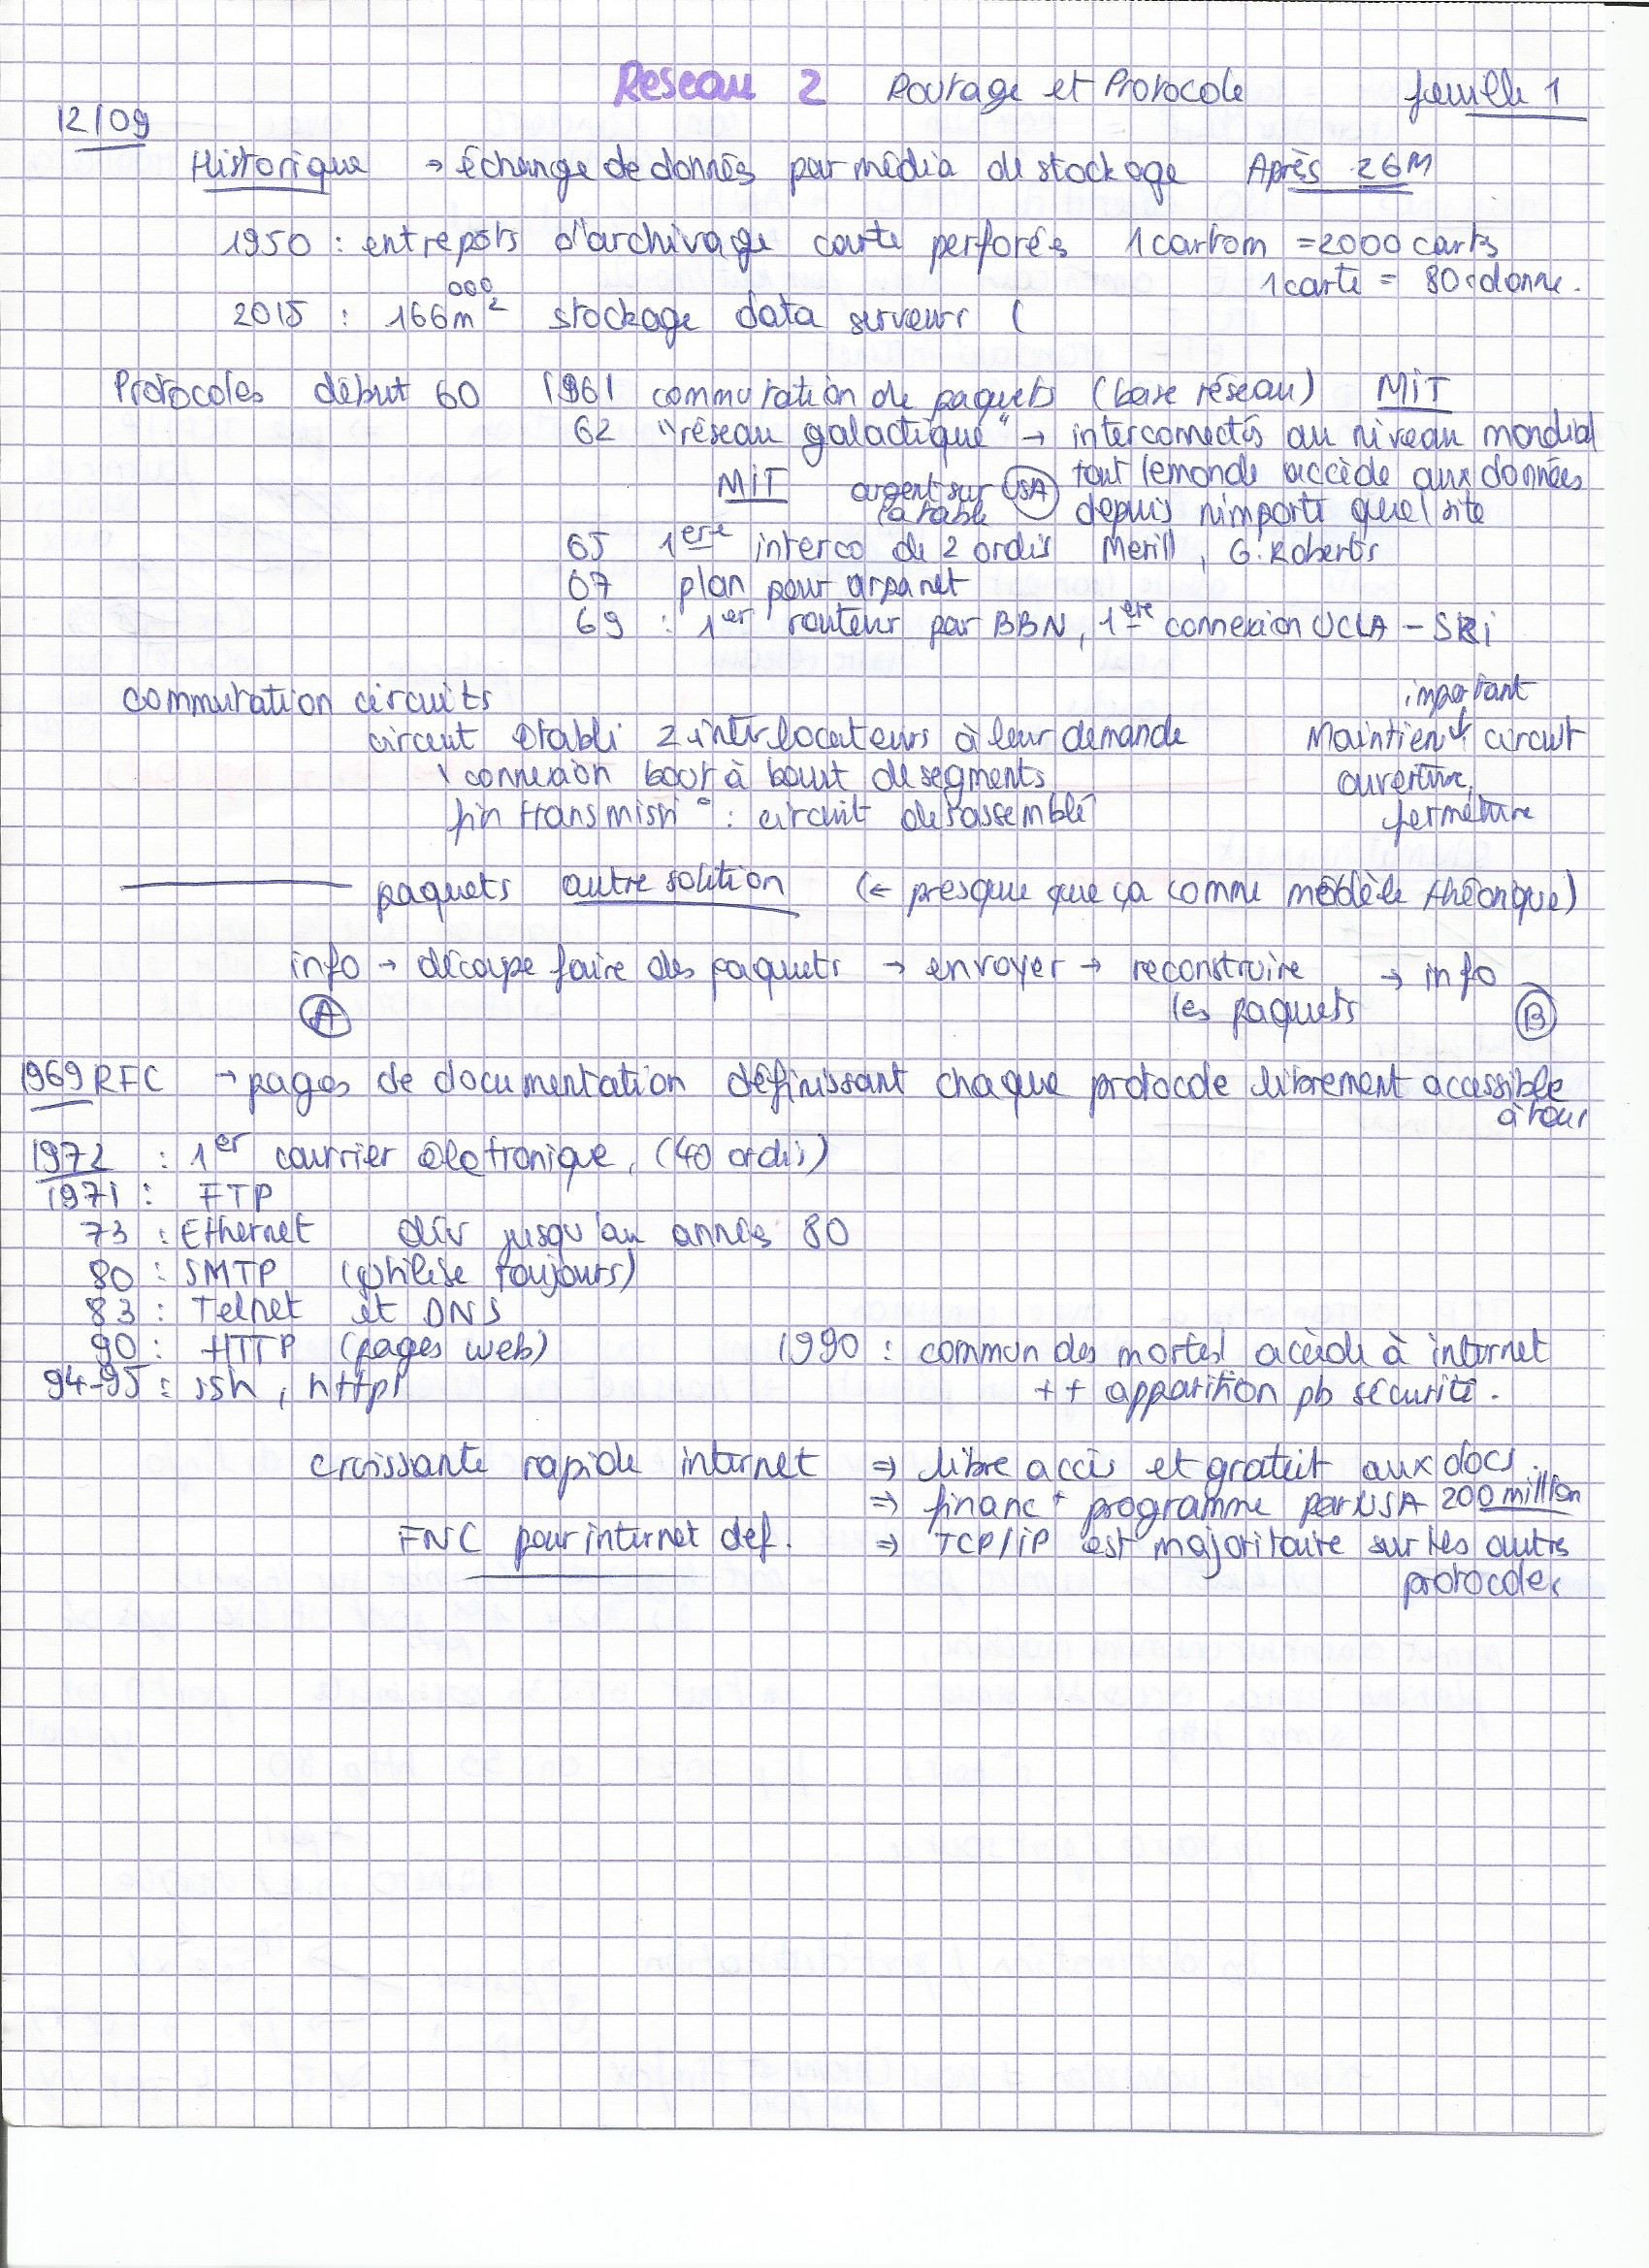 Reseau 2 Routage et Protocole feuille 1
12/09
Historique → échange de donnés par média de stockage Après 26M
1950 : entrepots d'archivage carte perforés 1 carton = 2000 carts
1 carte = 80 donne.
000
2015 : 166m² stockage data serveurs (
Protocoles début 60 1961 commutation de paquets (base réseau) MiT
62 "réseau galactique" → interconnectés au niveau mondial
MiT argent sur la table USA tout le monde accède aux données
depuis n'importe quel site
65 1ere interco de 2 ordis Merill, G. Roberts
67 plan pour arpanet
69 : 1er routeur par BBN, 1ère connexion UCLA - SRi
commutation circuits important
circuit établi 2 interlocuteurs à leur demande Maintien circuit
connexion bout à bout de segments ouverture,
fin transmissi° : circuit desassemblé fermeture
paquets autre solution (← presque que ça comme modèle théorique)
info → découpe faire des paquets → envoyer → reconstruire → info
les paquets
A B
1969 RFC → pages de documentation définissant chaque protocole librement acessible
à tous
1972 : 1er courrier életronique, (40 ordis)
1971 : FTP
73 : Ethernet dév jusqu'au années 80
80 : SMTP (utilise toujours)
83 : Telnet et DNS
90 : HTTP (pages web) 1990 : commun des mortel accède à internet
94-95 : ssh, https ++ apparition pb sécurité.
croissante rapide internet ⇒ libre accès et gratuit aux docs.
⇒ financ+ programme par USA 200 million
FNC pour internet def. ⇒ TCP/iP est majoritaire sur les autres
protocoles